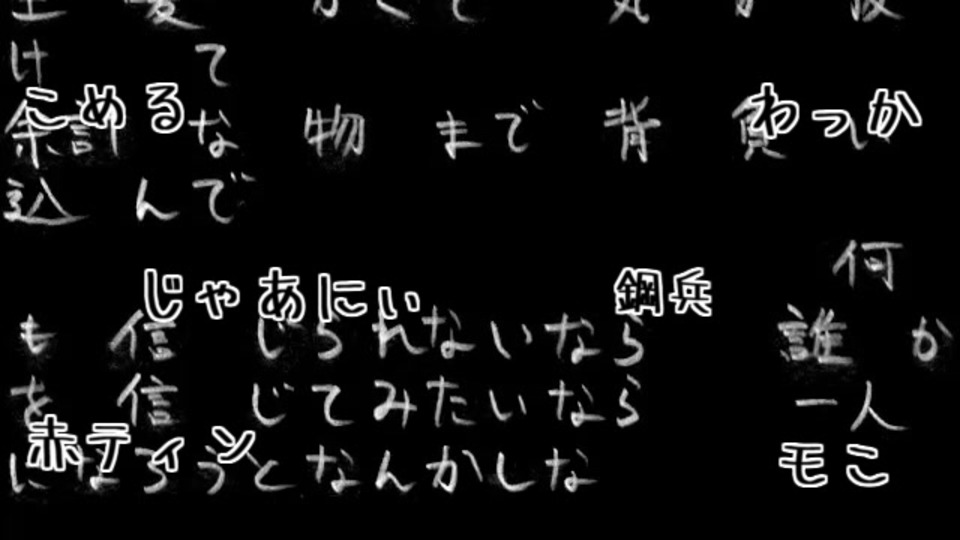 け て
こめる わっか
余計 な 物 まで 背 負い
込 んで
何
じゃあにぃ 鋼兵
も 信 じられないなら 誰 か
を 信 じてみたいなら 一人
赤ティン モこ
になろうとなんかしな